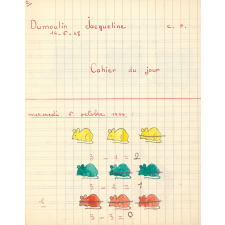 Dumoulin Jacqueline c. P.
Cahier du jour
mercredi 5 octobre
3 - 1 = 2
3 - 2 = 1
3 - 3 = 0